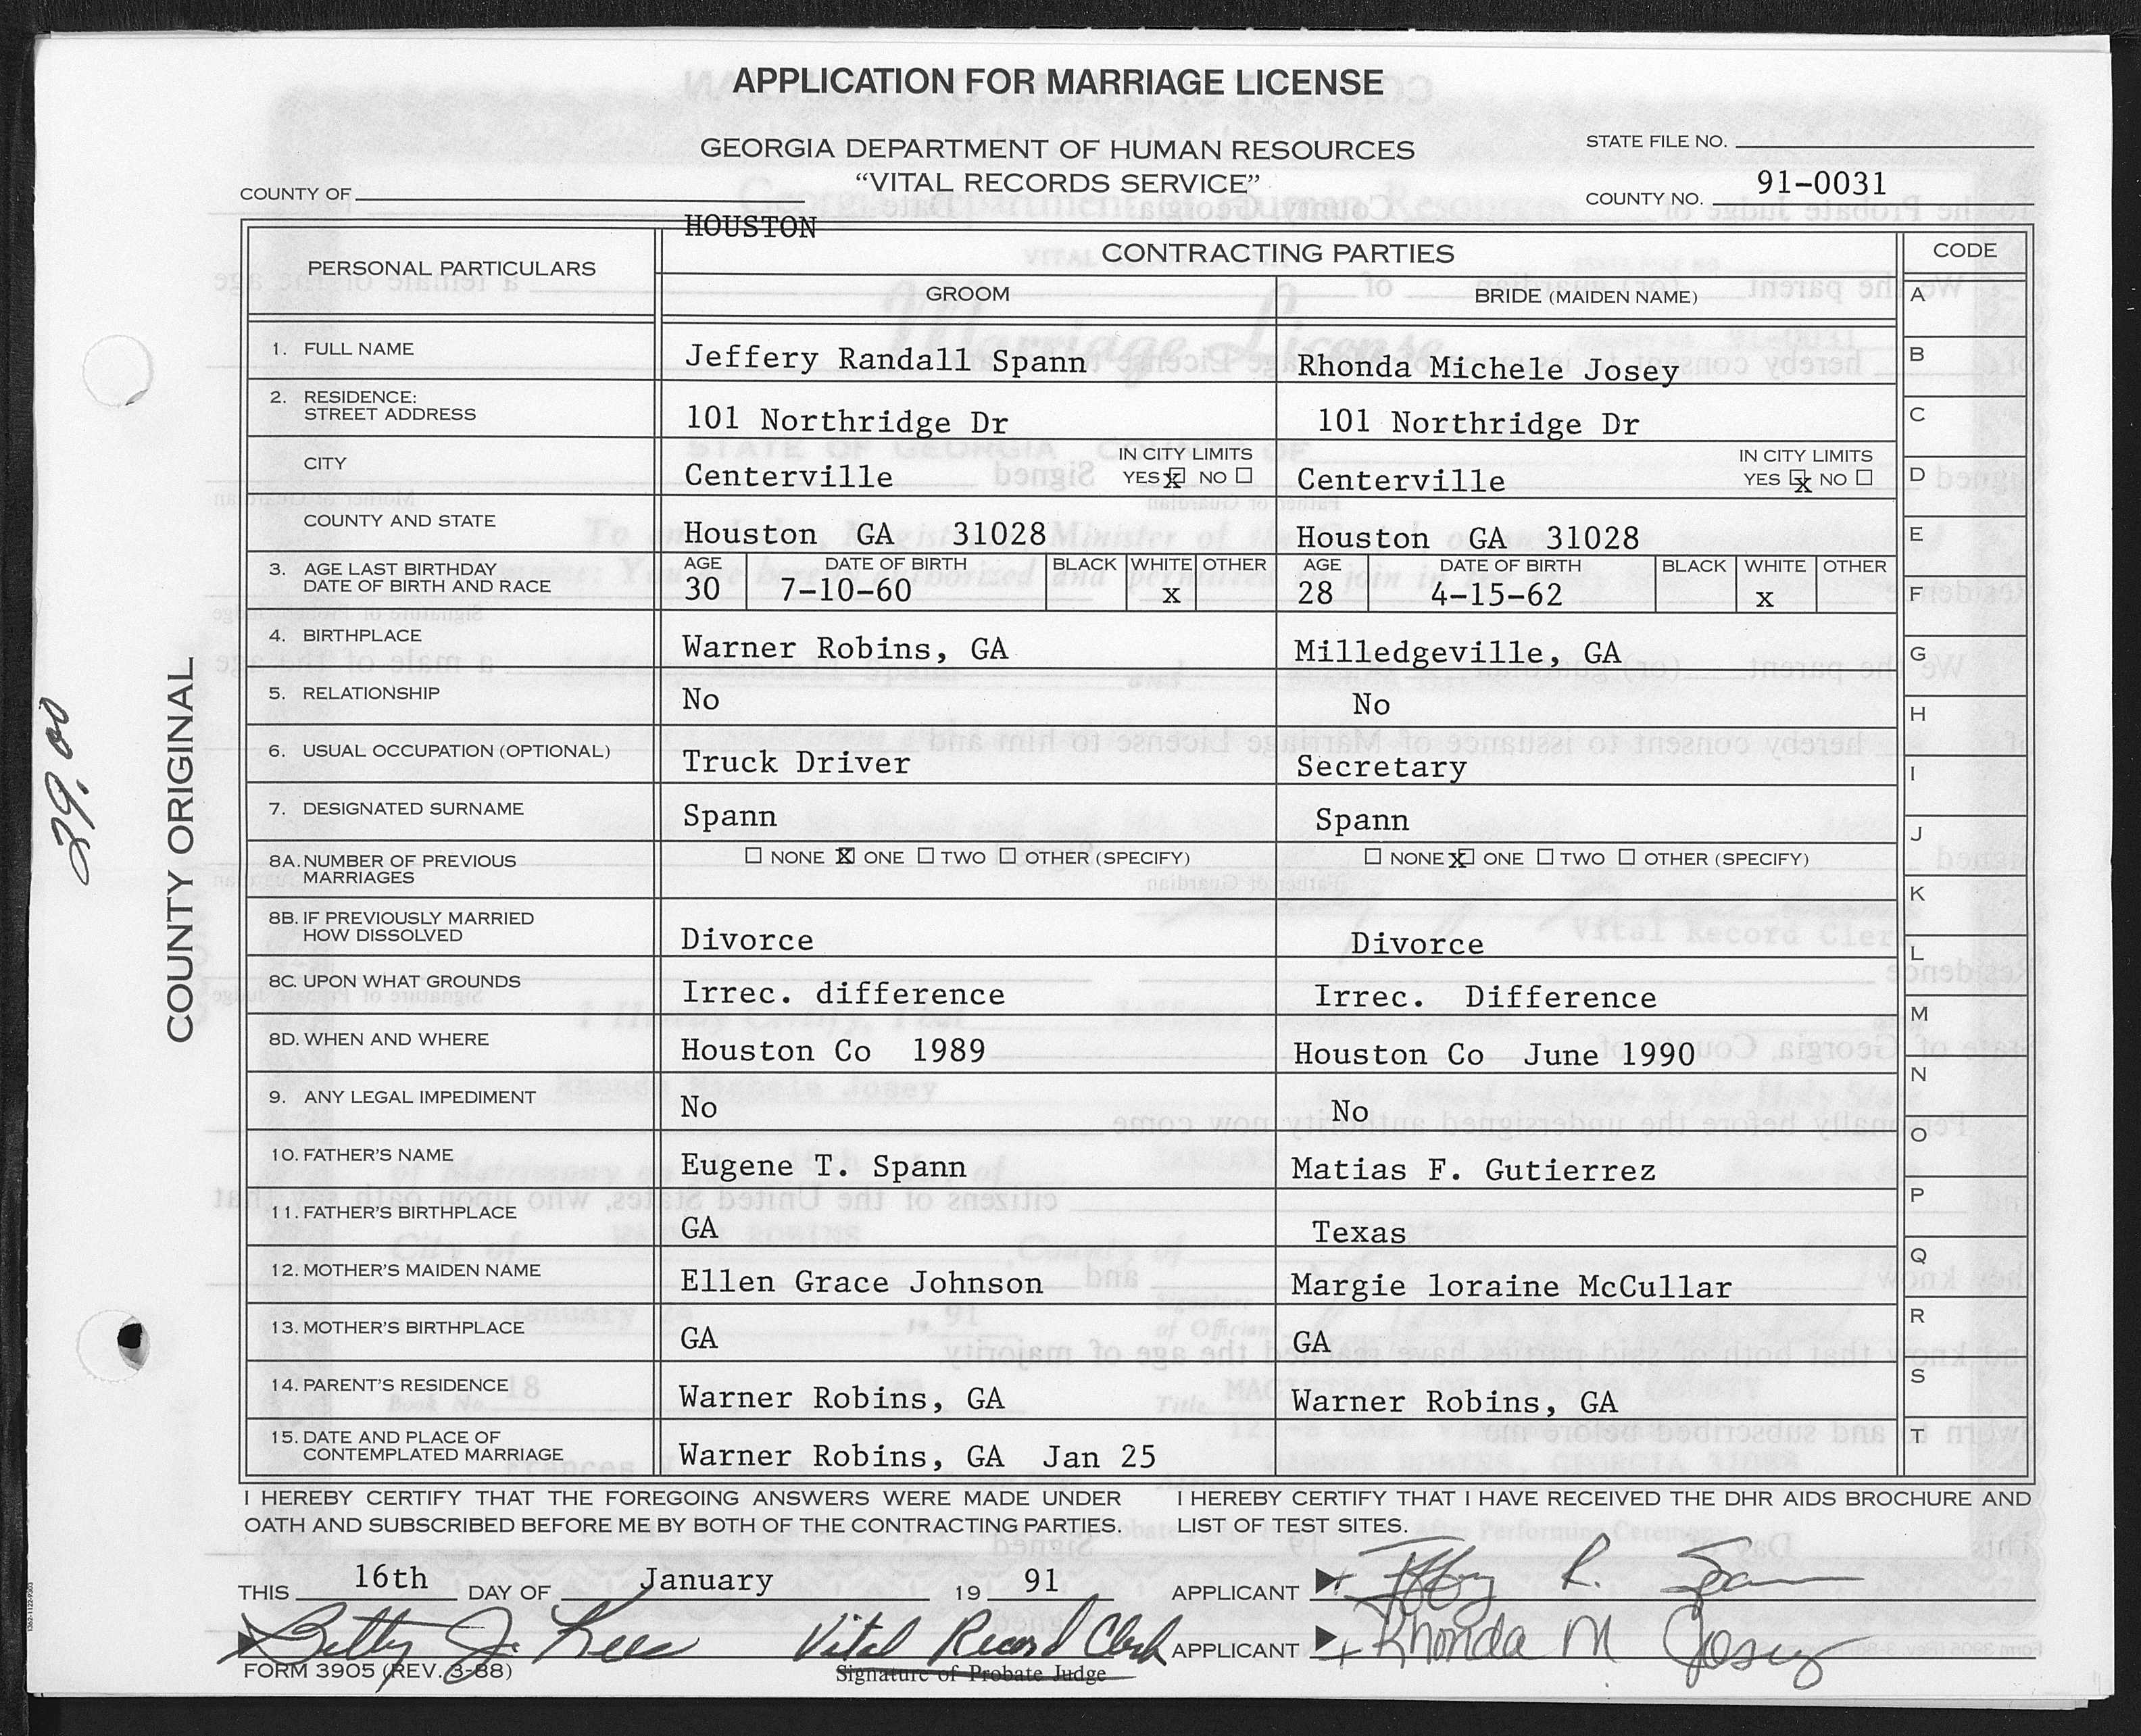 APPLICATION FOR MARRIAGE LICENSE
GEORGIA DEPARTMENT OF HUMAN RESOURCES
"VITAL RECORDS SERVICE"
STATE FILE NO.
COUNTY OF
HOUSTON
COUNTY NO. 91-0031
PERSONAL PARTICULARS
CONTRACTING PARTIES
CODE
GROOM
BRIDE (MAIDEN NAME)
A
1. FULL NAME Jeffery Randall Spann Rhonda Michele Josey
B
2. RESIDENCE:
STREET ADDRESS 101 Northridge Dr 101 Northridge Dr
C
CITY Centerville IN CITY LIMITS YES x NO Centerville IN CITY LIMITS YES x NO
D
COUNTY AND STATE Houston GA 31028 Houston GA 31028
E
3. AGE LAST BIRTHDAY
DATE OF BIRTH AND RACE
AGE DATE OF BIRTH BLACK WHITE OTHER AGE DATE OF BIRTH BLACK WHITE OTHER
30 7-10-60 x 28 4-15-62 x
F
4. BIRTHPLACE Warner Robins, GA Milledgeville, GA
G
5. RELATIONSHIP No No
H
6. USUAL OCCUPATION (OPTIONAL) Truck Driver Secretary
I
7. DESIGNATED SURNAME Spann Spann
J
8A. NUMBER OF PREVIOUS
MARRIAGES
NONE x ONE TWO OTHER (SPECIFY) NONE x ONE TWO OTHER (SPECIFY)
K
8B. IF PREVIOUSLY MARRIED
HOW DISSOLVED Divorce Divorce
L
8C. UPON WHAT GROUNDS Irrec. difference Irrec. Difference
M
8D. WHEN AND WHERE Houston Co 1989 Houston Co June 1990
N
9. ANY LEGAL IMPEDIMENT No No
O
10. FATHER'S NAME Eugene T. Spann Matias F. Gutierrez
P
11. FATHER'S BIRTHPLACE GA Texas
Q
12. MOTHER'S MAIDEN NAME Ellen Grace Johnson Margie loraine McCullar
R
13. MOTHER'S BIRTHPLACE GA GA
S
14. PARENT'S RESIDENCE Warner Robins, GA Warner Robins, GA
T
15. DATE AND PLACE OF
CONTEMPLATED MARRIAGE Warner Robins, GA Jan 25
COUNTY ORIGINAL
29.00
I HEREBY CERTIFY THAT THE FOREGOING ANSWERS WERE MADE UNDER
OATH AND SUBSCRIBED BEFORE ME BY BOTH OF THE CONTRACTING PARTIES.
I HEREBY CERTIFY THAT I HAVE RECEIVED THE DHR AIDS BROCHURE AND
LIST OF TEST SITES.
THIS 16th DAY OF January 19 91
APPLICANT Jeffery R. Spann
Betty J. Vital Record Clerk
APPLICANT Rhonda M Josey
FORM 3905 (REV. 3-88)
Signature of Probate Judge